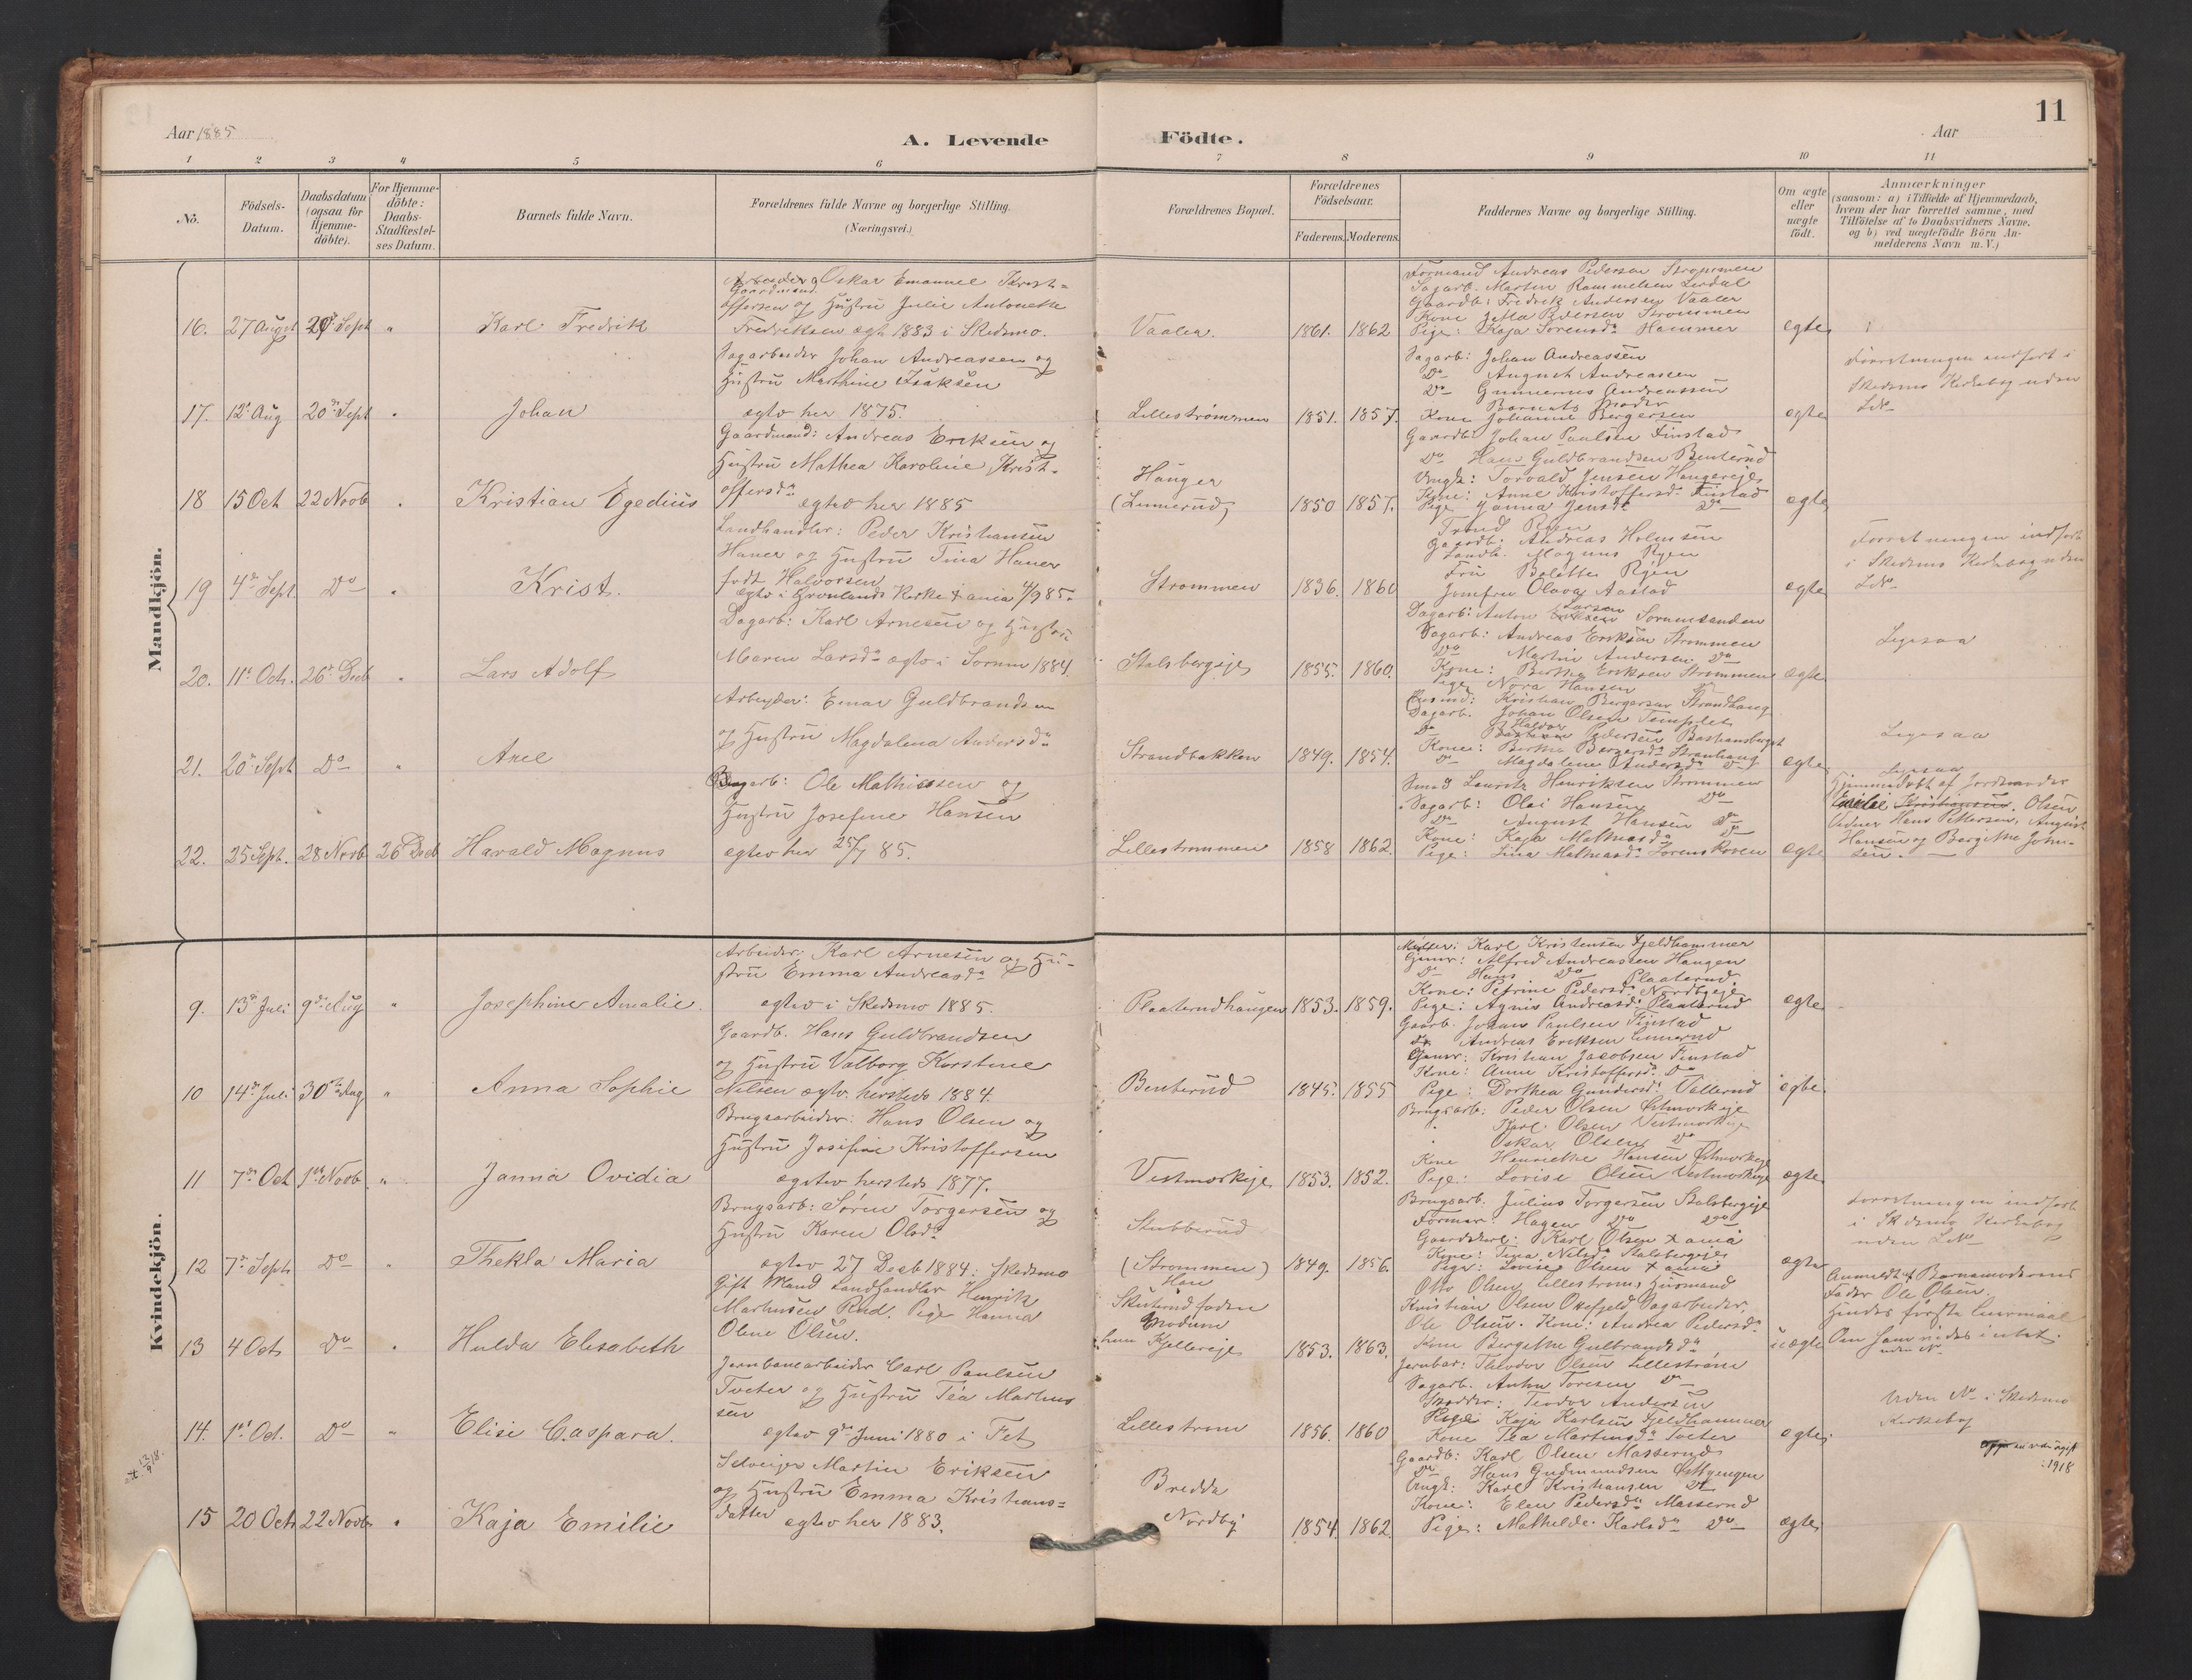 11
Aar 1885
A. Levende
Födte.
Aar
1 2 3 4 5 6 7 8 9 10 11
No.
Födsels-
Datum.
Daabsdatum
(ogsaa for
Hjemme-
döbte).
For Hjemme-
döbte:
Daabs-
Stadfæstel-
ses Datum.
Barnets fulde Navn.
Forældrenes fulde Navne og borgerlige Stilling.
(Næringsvei.)
Forældrenes Bopæl.
Forældrenes
Födselsaar.
Faderens. Moderens.
Faddernes Navne og borgerlige Stilling.
Om ægte
eller
uægte
födt.
Anmærkninger
(saasom: a) i Tilfælde af Hjemmedaab,
hvem der har forrettet samme, med
Tilföielse af to Daabsvidners Navne,
og b) ved uægtefödte Börn An-
melderens Navn m. V.)
Mandkjön.
16. 27 August Sept " Karl Fredrik
Arbeider Gaardmand Oskar Emanuel Krist-
offersen og Hustru Julie Antonette
Fredriksen egt. 1883 i Skedsmo.
Vaaler. 1861. 1862
Formand Andreas Pedersen Strømmen
Sagarb. Martin Rammelsen Lerdal
Gaardb: Fredrik Andersen Vaaler
Kone Jetta Pedersen Strømmen
Pige: Kaja Sørensd. Hammer
egte
17. 12 Aug 20 Sept " Johan
Sagarbeider Johan Andreassen og
Hustru Marthine Isaksen
egtv her 1875.
Lillestrømmen 1851. 1857.
Sagarb: Johan Andreassen
Do August Andreassen
Do Gunnerius Andreassen
Barnets Moder
Kone Johanne Bergersen
egte
Forretningen indført i
Skedsmo Kirkebog uden
No
18 15 Oct 22 Novb " Kristian Egedius
Gaardmand: Andreas Eriksen og
Hustru Mathea Karoline Krist-
offersd.
egtv her 1885
Hauger
(Linnerud) 1850 1857.
Gaardb: Johan Paulsen Finstad
Do Hans Guldbrandsen Benterud
Ungk: Torvald Jensen Haugereje
Kone: Anne Kristoffersd. Finstad
Pige Janna Jensd. Do
egte
19 4 Sept. Do " Krist.
Landhandler: Peder Kristiansen
Haner og Hustru Tina Haner
født Halvorsen
egtv i Grønlands Kirke Xania 4/9 85.
Strømmen 1836. 1860
Trond Ryen
Gaardb. Andreas Holmsen
Landb. Magnus Ryen
Fru Bolette Ryen
Jomfru Olava Aastad
egte
Forretningen indført
i Skedsmo Kirkebog uden
No
20. 11 Oct. 26 Decb " Lars Adolf
Dagarb: Karl Arnesen og Hustru
Maren Larsd. egtv i Sørum 1884.
Stalsbergeje 1855. 1860.
Dagarb: Anton Larsen Sørumsanden
Sagarb: Andreas Eriksen Strømmen
Do Martin Andersen Do
Kone: Berthe Eriksen Strømmen
Pige Nora Hansen
egte
Ligesaa
21. 20 Sept Do " Axel
Arbeyder: Einar Guldbrandsen
og Hustru Magdalena Andersd.
Strandbakken 1849. 1854.
Kristian Bergersen Strandhaug
Sagarb. Johan Olsen Templet
Do Halvor Pedersen Bashansberget
Kone: Berthe Bergersd. Strandhaug
Do Magdalene Andersd. Do
egte
Ligesaa
22. 25 Sept. 28 Novb 26 Decb Harald Magnus
Brugarb: Ole Mathissen og
Hustru Josefine Hansen
egtev her 25/7 85.
Lillestrømmen 1858 1862
Smed Lauritz Henriksen Strømmen
Sagarb: Olai Hansen Do
Do August Hansen Do
Kone: Kaja Mathiasd. Do
Pige: Lina Mathiasd. Sørenskoven
egte
Ligesaa
Hjemmedøbt af Jordmoder
Emilie Kristiansen. Olsen
Vidner Hans Pettersen, August
Hansen og Bergithe John-
sen. —
Kvindekjön.
9. 13 Juli 9 Aug " Josephine Amalie
Arbeider Karl Arnesen og Hu-
stru Emma Andreasd.
egtev i Skedsmo 1885.
Plaaterudhaugen 1853. 1859.
Møller: Karl Kristensen Fjeldhammer
Gaar: Alfred Andreassen Haugen
Do Hans Do Plaaterud
Kone: Petrine Pedersd. Nordbyeje
Pige: Agnis Andreasd. Plaaterud
egte
10 14 Juli 30 Aug " Anna Sophie
Gaardb. Hans Guldbrandsen
og Hustru Valborg Kirstine
Nilsen egtv. hersteds 1884.
Benterud 1845. 1855
Gaarb. Johan Paulsen Finstad
Do Andreas Eriksen Linnerud
Kristian Jacobsen Finstad
Kone: Anne Kristoffersd. Do
Pige: Dorthea Gundersd. Vallerud
egte
11 7 Oct 1 Novb. " Janna Ovidia
Brugsarbeider: Hans Olsen og
Hustru Josefine Kristoffersen
egtev hersteds 1877.
Vestmorkeje 1853. 1852.
Brugsarb: Peder Olsen Østmorkeje
" Karl Olsen Vestmorkeje
" Oskar Olsen Do
Kone Henriette Hansen Østmorkeje
Pige: Lovise Olsen Vestmorkeje
egte
12 7 Sept Do " Thekla Maria
Brugsarb: Søren Torgersen og
Hustru Karen Olsd.
egtev 27 Decb 1884 i Skedsmo
Stubberud
(Strømmen) 1849. 1856.
Brugsarb. Julius Torgersen Stalsbergeje
Former: Hagen Do Do
Gaardskarl: Karl Olsen Xania
Kone: Tina Nilsd. Stalsbergeje
Pige: Lovise Olsen Xania
egte
Forretningen indført
i Skedsmo Kirkebog
uden No
13 4 Oct Do " Hulda Elisabeth
Gift Mand Landhandler Henrik
Marhusen Rud. Pige Hanna
Oline Olsen.
Han
Skuterudfoden
Modum
hun Kjellereje 1853. 1863.
Otto Olsen Lillestrøm, Husmand
Kristian Olsen Okefjeld Sagarbeider.
Ole Olsen. Kone: Andrea Pedersd.
Kone Bergithe Gulbrandsd.
uegte
Anmeldt af Barnemoderens
Fader Ole Olsen.
Hendes første Leiermaal
Om ham vides intet.
uden No
14. 1 Oct. Do " Elise Caspara.
Jernbanearbeider Carl Paulsen
Tveter og Hustru Tea Martins
sen
egtev 9 Juni 1880 i Fet
Lillestrøm 1856. 1860
Jernbar: Theodor Olsen Lillestrøm
Sagarb. Anton Toresen Do
Skredder: Teodor Andersen
Pige Kaja Karlsen Fjeldhammer
Kone Tea Martinsd. Tveter
egte
Uden No i Skedsmo
Kirkebog
15 20 Oct 22 Novb " Kaja Emilie
Selveiger Martin Eriksen
og Hustru Emma Kristians-
datter egtev her 1883.
Bredda
Nordby 1854. 1862.
Gaardb: Karl Olsen Masserud
Do Hans Gudmundsen Østbyengen
Ungk: Karl Kristiansen Do
Kone: Elen Pedersd. Masserud
Pige: Mathilde Karlsd. Do
egte
1918